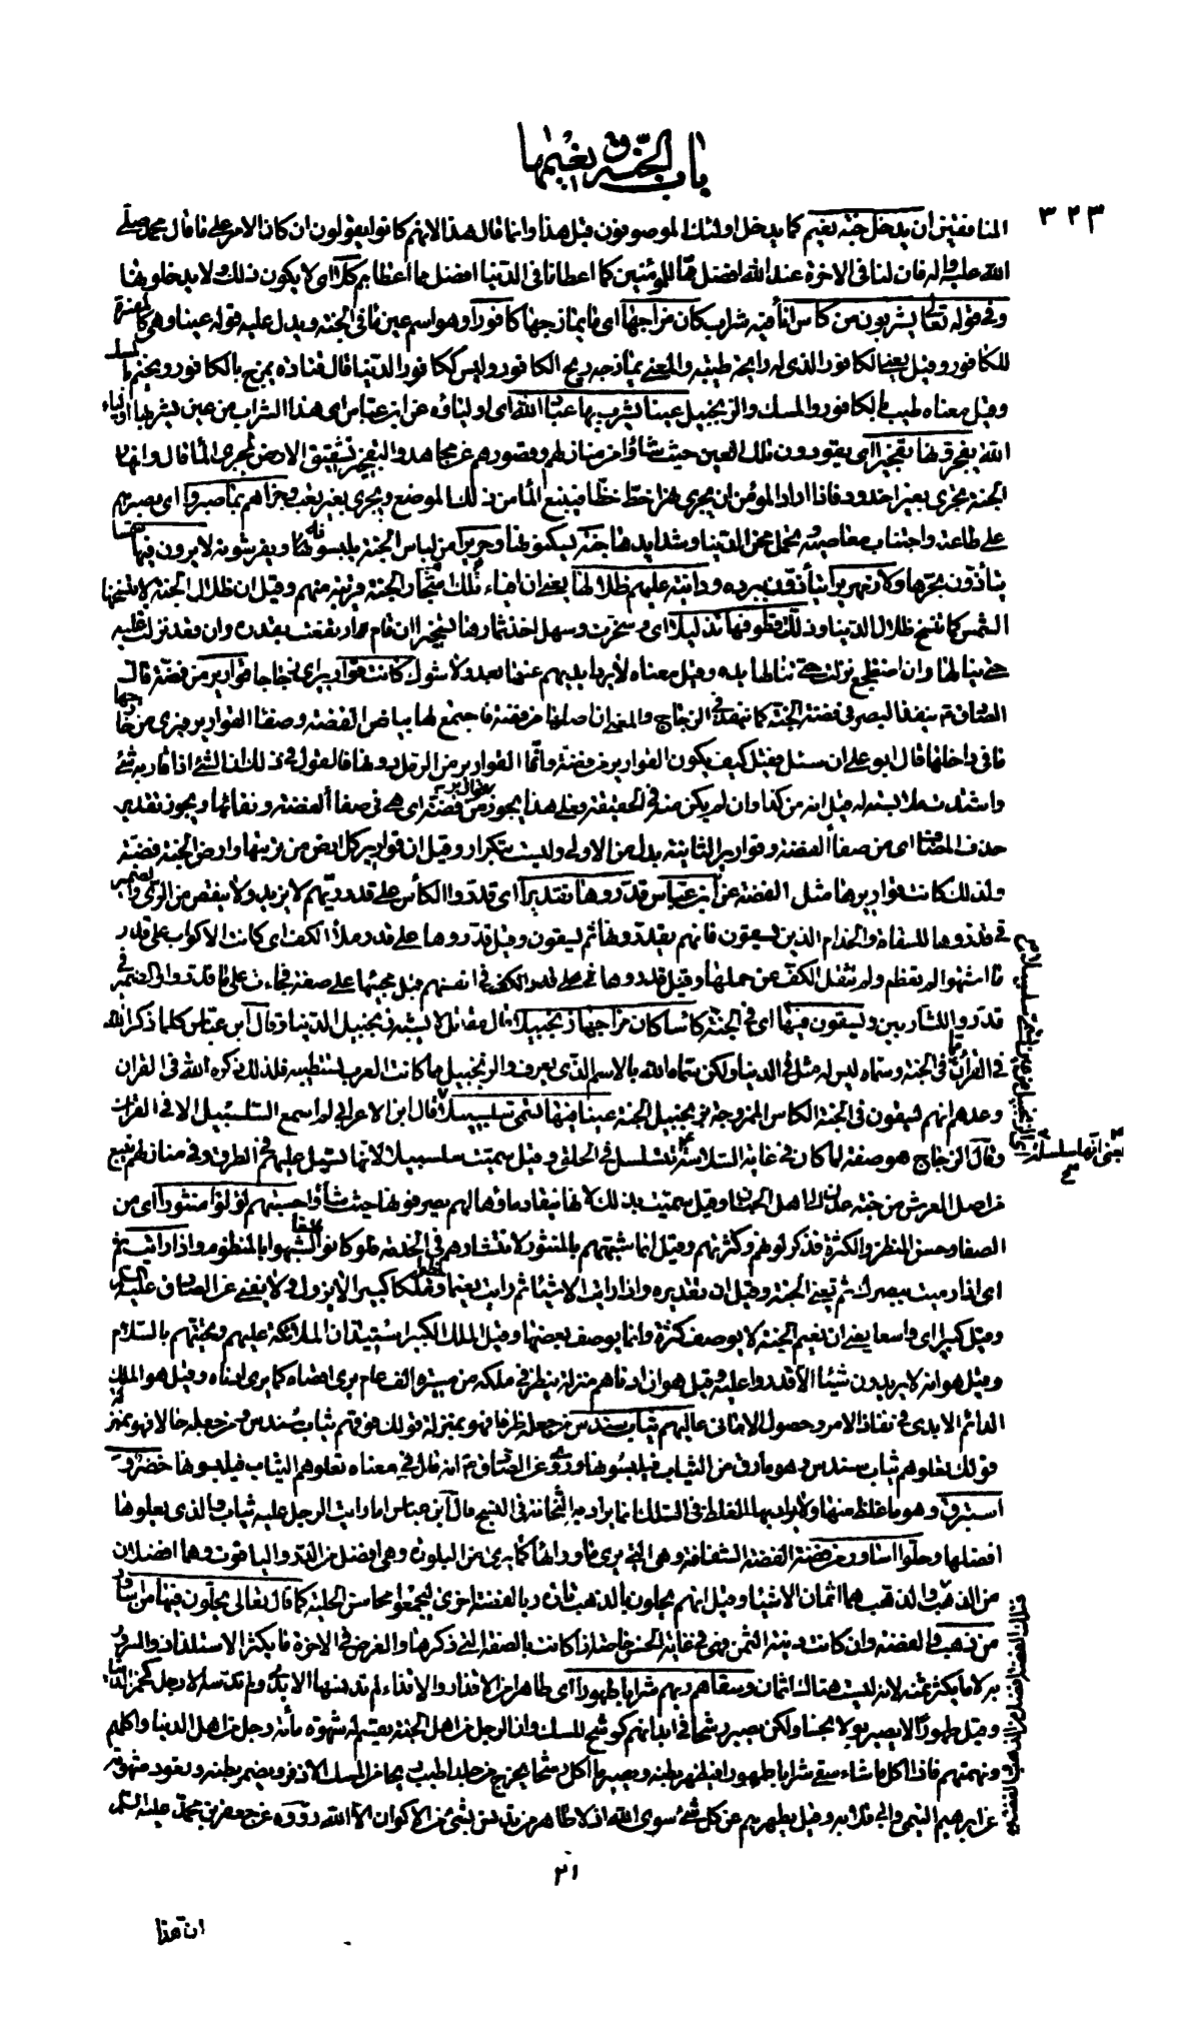 باب الجنة و نعيمها
٣٢٣
المنافقين ان يدخل جنة نعيم كما يدخل اولئك الموصوفون قبل هذا وانما قال هذا لانهم كانوا يقولون ان كان الامر على ما قال محمد صلى
الله عليه واله فان لنا فى الاخرة عند الله افضل مما للمؤمنين كما اعطانا فى الدنيا افضل مما اعطاهم كلا اى لا يكون ذلك ولا يدخلونها
وفى قوله تعالى يشربون من كأس اناء فيه شراب كان مزاجها اى ما يمازجها كافورا وهو اسم عين ماء فى الجنة ويدل عليه قوله عينا وهى كالمفسرة
للكافور وقيل يعنى الكافور الذى له رايحة طيبة والمعنى يمازجه ريح الكافور وليس ككافور الدنيا قال قتادة يمزج بالكافور ويختم بالمسك
وقيل معناه طيب بالكافور والمسك والزنجبيل عينا يشرب بها عباد الله اى اولياؤه عن ابن عباس اى هذا الشراب من عين يشربها اولياء
الله يفجرونها تفجيرا اى يقودون تلك العين حيث شاؤا من منازلهم وقصورهم عن مجاهد والتفجير تشقيق الارض لجرى الماء قال وانهار
الجنة تجرى بغير اخدود فاذا اراد المؤمن ان يجرى نهرا خط خطا فينبع الماء من ذلك الموضع ويجرى بغير تعب وجزاهم بما صبروا اى بصبرهم
على طاعته واجتناب معاصيه وتحمل محن الدنيا وشدايدها جنة يسكنونها وحريرا من لباس الجنة يلبسونه ويفرشونه لا يرون فيها شمسا
يتأذون بحرها ولا زمهريرا يتأذون ببرده ودانية عليهم ظلالها يعنى ان افياء تلك اشجار الجنة قريبة منهم وقيل ان ظلال الجنة لا تنسخها
الشمس كما تنسخ ظلال الدنيا وذللت قطوفها تذليلا اى وسخرت وسهل اخذ ثمارها تسخيرا ان قام ارتفعت بقدره وان قعد نزلت عليه
حتى ينالها وان اضطجع نزلت حتى تنالها يده وقيل معناه لا يرد ايديهم عنها بعد ولا شوك كانت قواريرا اى زجاجا قوارير من فضة قال
الصادق ع ينفذ البصر فى فضة الجنة كما ينفذ فى الزجاج والمعنى ان اصلها من فضة فاجتمع لها بياض الفضة وصفاء القوارير فيرى من خارجها
ما فى داخلها قال ابو على ان سئل فقيل كيف يكون القوارير من فضة وانما القوارير من الرمل دونها فالقول فى ذلك ان الشئ اذا قاربه شئ
واشتدت ملابسته له قيل انه من كذا وان لم يكن منه فى الحقيقة فعلى هذا يجوز قوارير من فضة اى هى فى صفاء الفضة ونقائها ويجوز تقدير
حذف المضاف اى من صفاء الفضة وقوارير الثانية بدل من الاولى وليست بتكرار وقيل ان قوارير كل ارض من تربتها وارض الجنة فضة
ولذلك كانت قواريرها مثل الفضة عن ابن عباس قدروها تقديرا اى قدروا الكأس على قدر ريهم لا يزيد ولا ينقص من الرى والضمير
فى قدروها للسقاة والخدام الذين يسقون فانهم يقدرونها ثم يسقون وقيل قدروها على قدر ملأ الكف اى كانت الاكواب على قدر
ما اشتهوا لم تعظم ولم تثقل الكف عن حملها وقيل قدروها فى انفسهم قبل مجيئها على صفة فجاءت على ما قدروا والضمير فى
قدروا للشاربين ويسقون فيها اى فى الجنة كأسا كان مزاجها زنجبيلا قال مقاتل لا يشبه زنجبيل الدنيا وقال ابن عباس كلما ذكره الله
فى القران مما فى الجنة وسماه ليس له مثل فى الدنيا ولكن سماه الله بالاسم الذى يعرف والزنجبيل مما كانت العرب تستطيبه فلذلك ذكره الله فى القران
ووعدهم انهم يسقون فى الجنة الكاس الممزوجة بزنجبيل الجنة عينا فيها تسمى سلسبيلا قال ابن الاعرابى لم اسمع السلسبيل الا فى القران
وقال الزجاج هو صفة لما كان فى غاية السلاسة تتسلسل فى الحلق وقيل سميت سلسبيلا لانها تسيل عليهم فى الطرق وفى منازلهم تنبع
من اصل العرش من جنة عدن الى اهل الجنان وقيل سميت بذلك لانها ينقاد ماؤها لهم يصرفونها حيث شاؤا حسبتهم لؤلؤا منثورا اى من
الصفاء وحسن المنظر والكثرة فذكر لونهم وكثرتهم وقيل انما شبههم بالمنثور لانتشارهم فى الخدمة فلو كانوا صفا لشبهوا بالمنظوم واذا رايت ثم
اى اذا رميت ببصرك ثم يعنى الجنة وقيل ان تقديره واذا رايت الاشياء ثم رايت نعيما وملكا كبيرا لا يزول ولا يفنى عن الصادق عليه السلام
وقيل كبيرا اى واسعا يعنى ان نعيم الجنة لا يوصف كثرة وانما يوصف بعضها وقيل الملك الكبير استيذان الملائكة عليهم وتحيتهم بالسلام
وقيل هو انه لا يريدون شيئا الا قدروا عليه وقيل هو ان ادناهم منزلة ينظر فى ملكه من مسيرة الف عام يرى اقصاه كما يرى ادناه وقيل هو الملك
الدائم الابدى فى نفاذ الامر وحصول الامانى عاليهم ثياب سندس من جعله ظرفا فهو بمنزلة قولك فوقهم ثياب سندس ومن جعله حالا فهو بمنزلة
قولك يعلوهم ثياب سندس وهو مارق من الثياب فيلبسونها وروى عن الصادق ع انه قال فى معناه تعلوهم الثياب فيلبسونها خضر و
استبرق وهو ما غلظ منها ولا يراد به الغلظ فى السلك انما يراد به الثخانة فى النسج قال ابن عباس اما رايت الرجل عليه ثياب والذى يعلوها
افضلها وحلوا اساور من فضة الفضة الشفافة وهى التى يرى ما وراءها كما يرى من البلورة وهى افضل من الدر والياقوت وهما افضلان
من الذهب والذهب هما اثمان الاشياء وقيل انهم يحلون بالذهب تارة وبالفضة اخرى ليجمعوا محاسن الحلية كما قال تعالى يحلون فيها من اساور
من ذهب والفضة وان كانت دنية الثمن فهى فى غاية الحسن خاصة اذا كانت بالصفة التى ذكرها والغرض فى الاخرة ما يكثر الاستلذاذ والسرور
به لا ما يكثر ثمنه لانه ليست هناك اثمان وسقاهم ربهم شرابا طهورا اى طاهرا من الاقذار والاقذاء لم تدنسها الايدى ولم تدسه الارجل كخمر الدنيا
وقيل طهورا لا يصير بولا نجسا ولكن يصير رشحا فى ابدانهم كرشح المسك وان الرجل من اهل الجنة يقسم له شهوة مأة رجل من اهل الدنيا واكلهم
ونهمتهم فاذا اكل ما شاء سقى شرابا طهورا فيطهر بطنه ويصير ما اكل رشحا يخرج من جلده اطيب ريحا من المسك الاذفر ويضمر بطنه وتعود شهوته
عن ابرهيم التيمى وابى قلابه وقيل يطهرهم عن كل شئ سوى الله اذ لا طاهر من تدنس بشئ من الاكوان الا الله رووه عن جعفر بن محمد عليه السلام
٢١
ان هذا